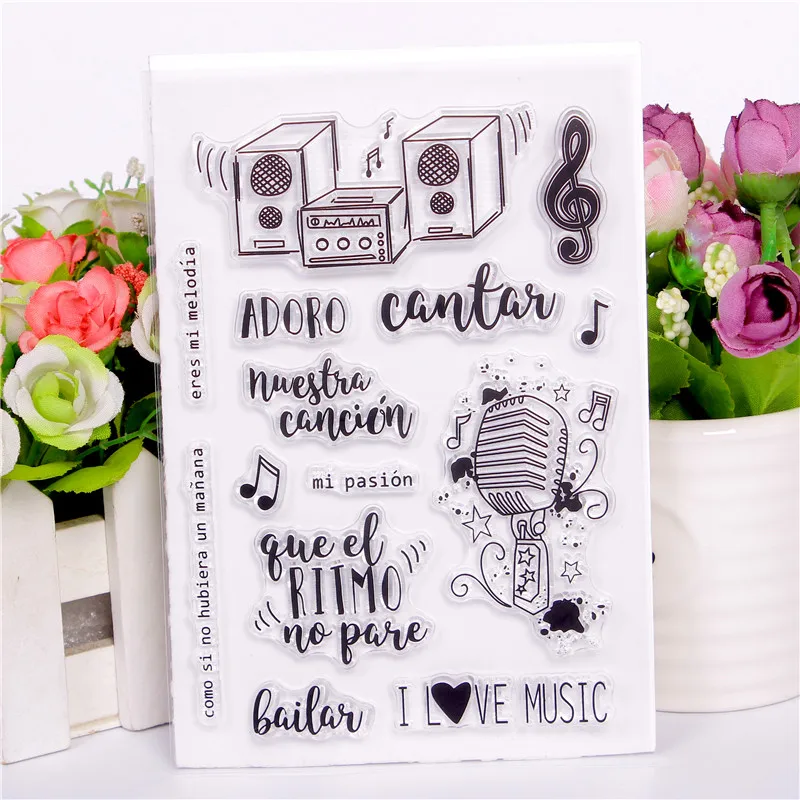 eres mi melodía
ADORO
cantar
nuestra
canción
mi pasión
como si no hubiera un mañana
que el
RITMO
no pare
bailar
I L♥VE MUSIC